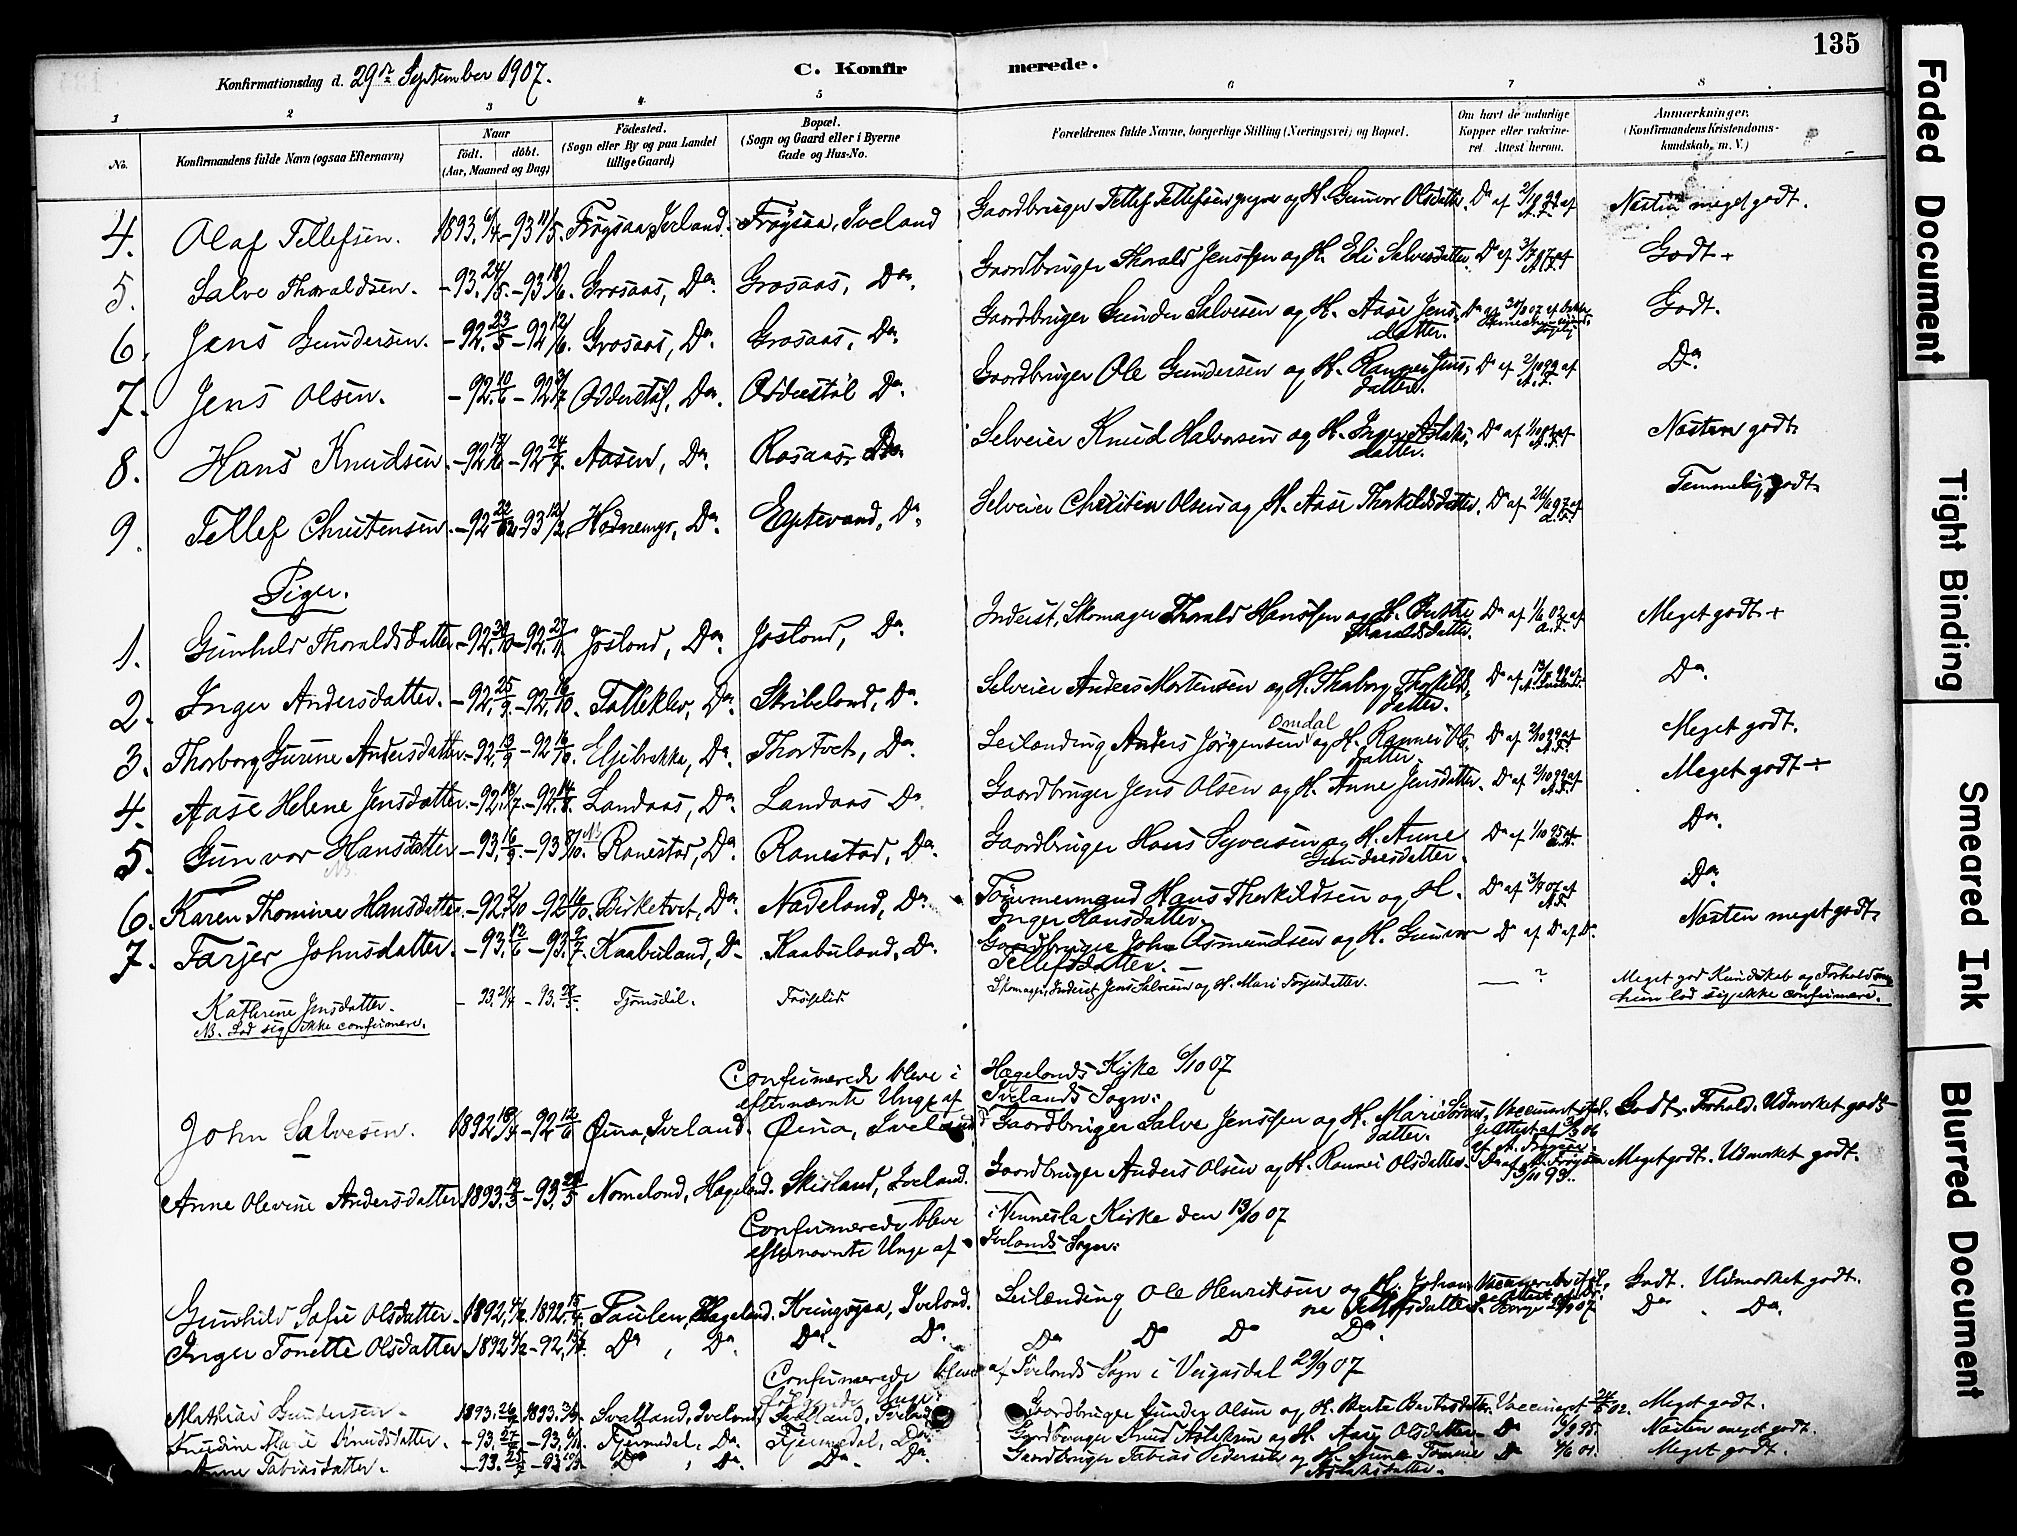 135
Konfirmationsdag d. 29de September 1907.
C. Konfirmerede.
1 2 3 4 5 6 7 8
No.
Konfirmandens fulde Navn (ogsaa Efternavn)
Naar født. døbt. (Aar, Maaned og Dag)
Fødested. (Sogn eller By og paa Landet tillige Gaard)
Bopæl. (Sogn og Gaard eller i Byerne Gade og Hus-No.
Forældrenes fulde Navne, borgerlige Stilling (Næringsvei) og Bopæl.
Om havt de naturlige Kopper eller vaccineret Attest herom.
Anmærkninger. (Konfirmandens Kristendomskundskab, m. V.)
4. Olaf Tellefsen. 1893 6/4 -93 11/5. Frøysaa, Iveland. Frøysaa, Iveland Gaardbruger Tellef Tellefsen og H. Gunvor Olsdatter. Næsten meget godt.
5. Salve Thoraldsen. -93 24/5. -93 18/6. Grosaas, Do. Grosaas, Do. Gaardbruger Thorald Jenssen og H. Eli Salvesdatter. Godt +
6. Jens Gundersen. -92 23/5 -92 12/6. Grosaas, Do. Grosaas, Do. Gaardbruger Gunder Salvesen og H. Aase Jensdatter. Godt.
7. Jens Olsen. -92 10/6 -92 3/7 Odderstøl, Do. Odderstøl Do. Gaardbruger Ole Gundersen og H. Rannei Jensdatter. Do.
8. Hans Knudsen. -92 -92 24/7. Aasen, Do. Rosaas, Do. Selveier Knud Halvorsen og H. Inger Aslaksdatter. Næsten godt.
9. Tellef Christensen -92 22/12 -93 12/2. Hodnemyr, Do. Eptevand, Do. Selveier Christen Olsen og H. Aase Thorkildsdatter. Temmelig godt.
Piger.
1. Gunhild Thoraldsdatter -92 -92 27/11. Josland, Do. Josland, Do. Inderst, Skomager Thorald Hanssen og H. Berthe Tharaldsdatter. Meget godt +
2. Inger Andersdatter. -92. 25/9 -92. 16/10. Tatteklev, Do. Skribeland, Do. Selveier Anders Mortensen og H. Thaborg Thorkildsdatter. Do.
3. Thorborg Gurine Andersdatter. -92. 13/9 -92 16/10. Elgebrække, Do. Thortvet, Do. Leilænding Anders Jørgensen Omdal og H. Rannei Olsdatter. Meget godt.
4. Aase Helene Jensdatter. -92. 18/7 -92. 14/8. Landaas, Do. Landaas Do. Gaardbruger Jens Olsen og H. Anne Jensdatter. Do af 2/10 99 af Meget godt +
5. Gunvor Hansdatter -93. 16/9. -93 8/10. Ranestad, Do. Ranestad, Do. Gaardbruger Hans Syversen og H. Anne Gundersdatter. Do af 1/10 95 Do.
6. Karen Thomine Hansdatter. -92. 2/10 -92 16/10. Birketvet, Do. Nædeland, Do. Tømmermand Hans Thorkildsen og H. Inger Hansdatter. Do af 3/9 07 af Do.
7. Tarjer Johnsdatter. -93. 12/6 -93. 9/7. Kaabuland, Do. Kaabuland, Do. Gaardbruger John Asmundsen og H. Gunvor Tellefsdatter. Do af Do af Do. Næsten meget godt.
Kathrine Jensdatter. - 93. 21/4 - 93. Tjomsdal. Frøyslid. Skomager, Inderst Jens Salvesen og H. Mari Torjusdatter. — ? Meget god Kundskab og Forhold men hun lod sig ikke confirmere.
NB. Lod sig ikke confirmere.
Confirmerede bleve i Hægelands Kirke 6/10 07
efternævnte Unge af Ivelands Sogn:
John Salvesen. 1892 18/5 -92 12/6 Øina, Iveland. Øina, Iveland Gaardbruger Salve Jenssen og H. Mari datter. Godt. Forhold. Udmærket godt
Anne Olevine Andersdatter 1893. -93. 28/5 Nomeland, Hægeland. Skisland, Iveland. Gaardbruger Anders Olsen og H. Rannei Olsdatter. Meget godt. Udmærket godt.
Confirmerede bleve i Vennesla Kirke den 13/10 07
efternævnte Unge af Ivelands Sogn:
Gunhild Sofie Olsdatter. 1892. 1892. Paulen, Hægeland. Kringsjaa, Iveland. Leilænding Ole Henriksen og H. Johanne Tellefsdatter. Godt. Udmærket godt.
Inger Tonette Olsdatter 1892 -92. Do, Do. Do. Do. Do Do Do Do. Do. Do.
Confirmerede bleve af Ivelands Sogn i Veigusdal 29/9 07
følgende Unge:
Mathias Gundersen. 1893. 1893. Svaland, Iveland Svaland, Iveland Gaardbruger Gunder Olsen og H. Berte Bertusdatter. Vaccineret Meget godt.
Marie Knudsdatter. -93. -93. Tjomsdal, Do. Tjomsdal, Do. Gaardbruger Knud Aslaksen og H. Aase Olsdatter. Do Næsten meget godt.
Anne Tobiasdatter. -93. -93 Do, Do. Do. Do. Gaardbruger Tobias Pedersen og H. Anne Tomine Aslaksdatter. Do 4/6 01. Meget godt.
Faded Document
Tight Binding
Smeared Ink
Blurred Document